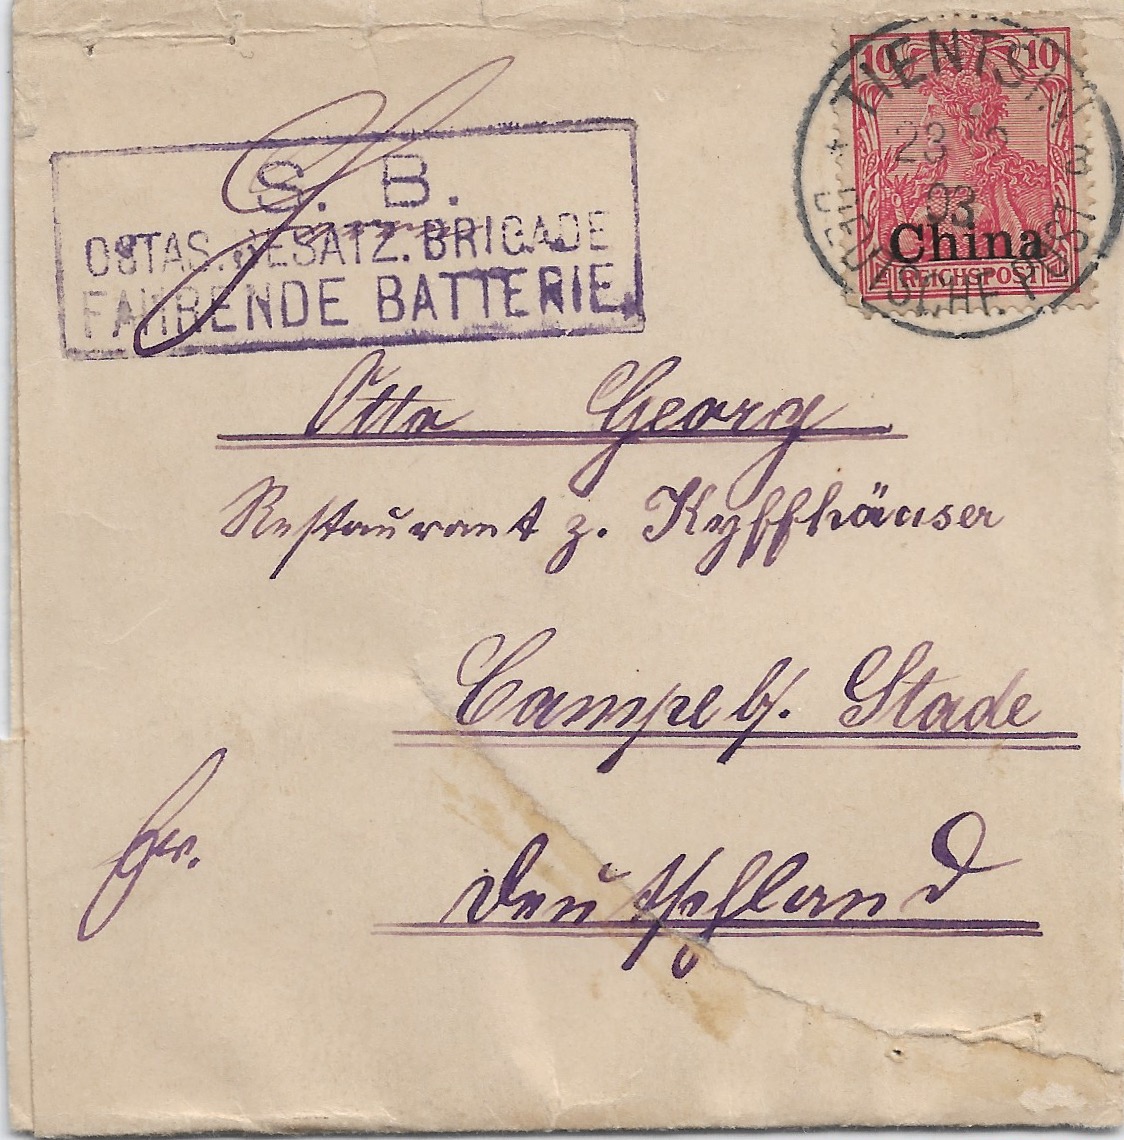 10 10
China
REICHSPOST
TIENTSIN
23
03
DEUTSCHE POST
S. B.
OSTAS. BESATZ. BRIGADE
FAHRENDE BATTERIE
Otto Georg
Restaurant z. Kyffhäuser
Campe b/. Stade
Deutschland